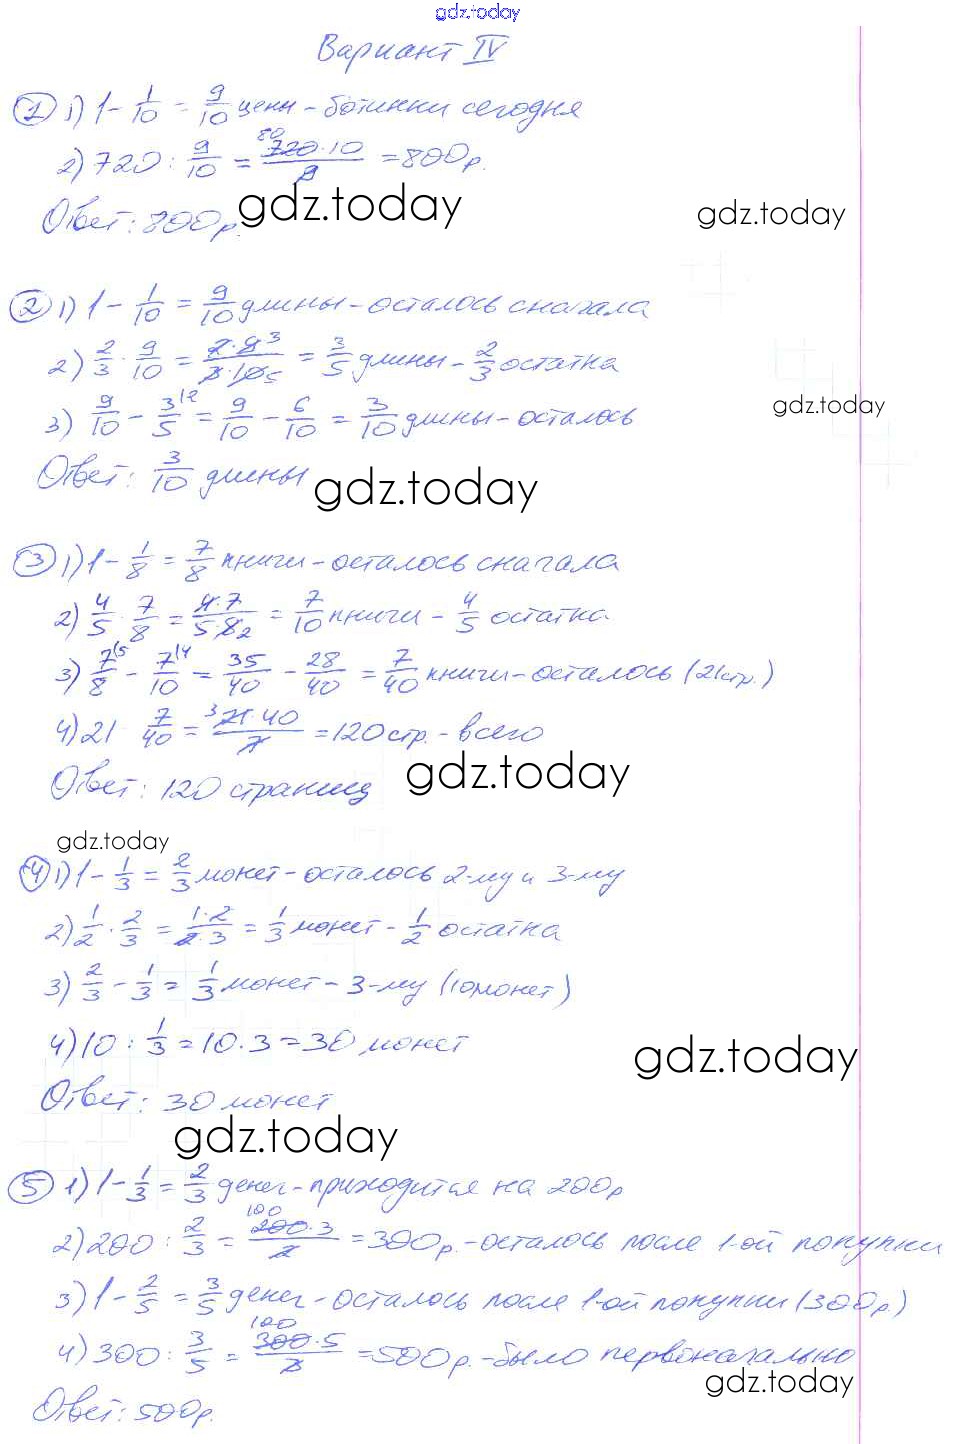 gdz.today
Вариант IV
① 1) 1 - 1/10 = 9/10 цены - ботинки сегодня
2) 720 : 9/10 = 80 720·10/9 = 800р.
Ответ: 800р.
gdz.today
gdz.today
② 1) 1 - 1/10 = 9/10 длины - осталось сначала
2) 2/3 · 9/10 = 2·9 3/3·10 5 = 3/5 длины - 2/3 остатка
gdz.today
3) 9/10 - 3/5 |2 = 9/10 - 6/10 = 3/10 длины - осталось
Ответ: 3/10 длины
gdz.today
③ 1) 1 - 1/8 = 7/8 книги - осталось сначала
2) 4/5 · 7/8 = 4·7/5·8 2 = 7/10 книги - 4/5 остатка
3) 7/8 |5 - 7/10 |4 = 35/40 - 28/40 = 7/40 книги - осталось (21стр.)
4) 21 : 7/40 = 3 21·40/7 = 120 стр. - всего
gdz.today
Ответ: 120 страниц
gdz.today
④ 1) 1 - 1/3 = 2/3 монет - осталось 2-му и 3-му
2) 1/2 · 2/3 = 1·2/2·3 = 1/3 монет - 1/2 остатка
3) 2/3 - 1/3 = 1/3 монет - 3-му (10монет)
4) 10 : 1/3 = 10·3 = 30 монет
gdz.today
Ответ: 30 монет
gdz.today
⑤ 1) 1 - 1/3 = 2/3 денег - приходится на 200р
2) 200 : 2/3 = 100 200·3/2 = 300р. - осталось после 1-ой покупки
3) 1 - 2/5 = 3/5 денег - осталось после 1-ой покупки (300р.)
4) 300 : 3/5 = 100 300·5/3 = 500р. - было первоначально
gdz.today
Ответ: 500р.